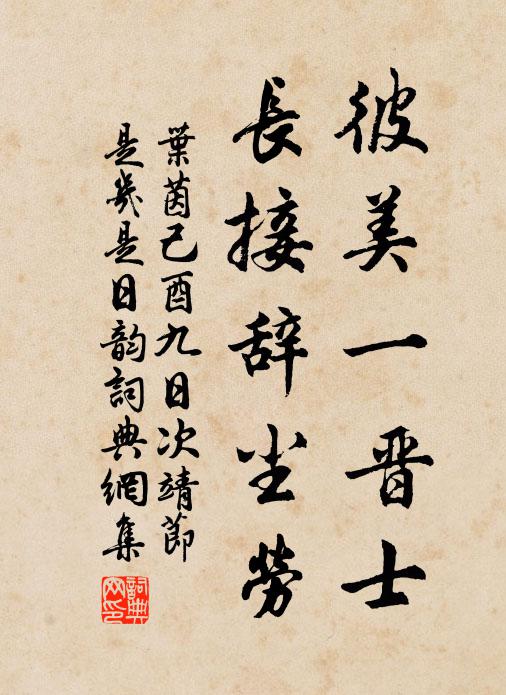 彼美一晋士
長接辞尘勞
葉茵己酉九日次靖節
是歲是日韵詞典網集
詞典
网印